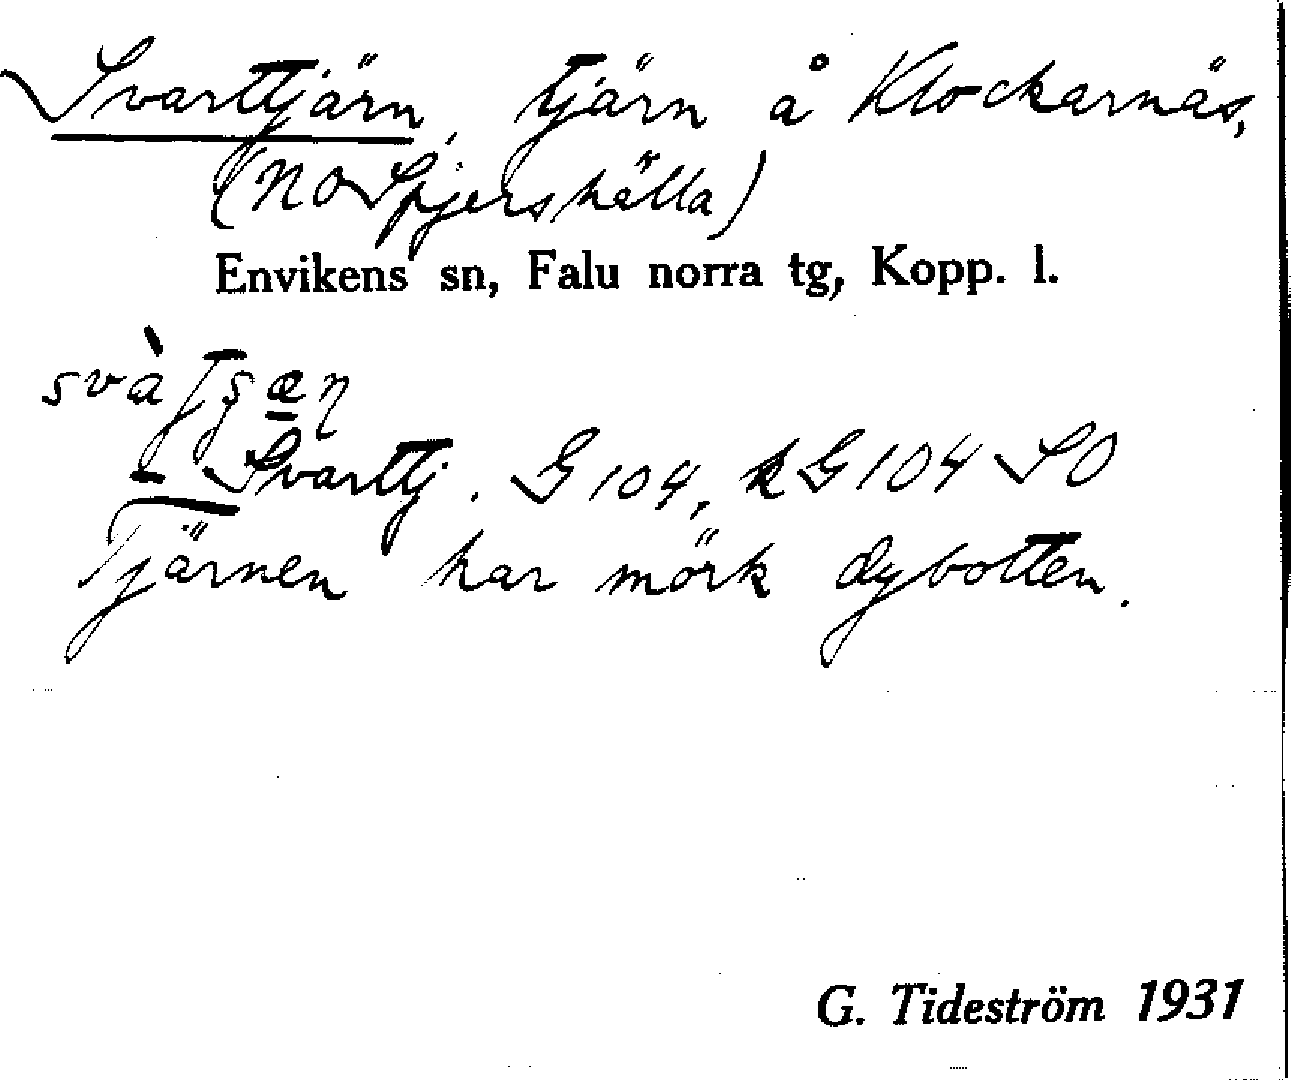 Svarttjärn, tjärn å Klockarnäs,
(NO Spjershälla)
Envikens sn, Falu norra tg, Kopp. l.
Svarttj. G 104, RG 104 SO
Tjärnen har mörk dybotten.
G. Tideström 1931